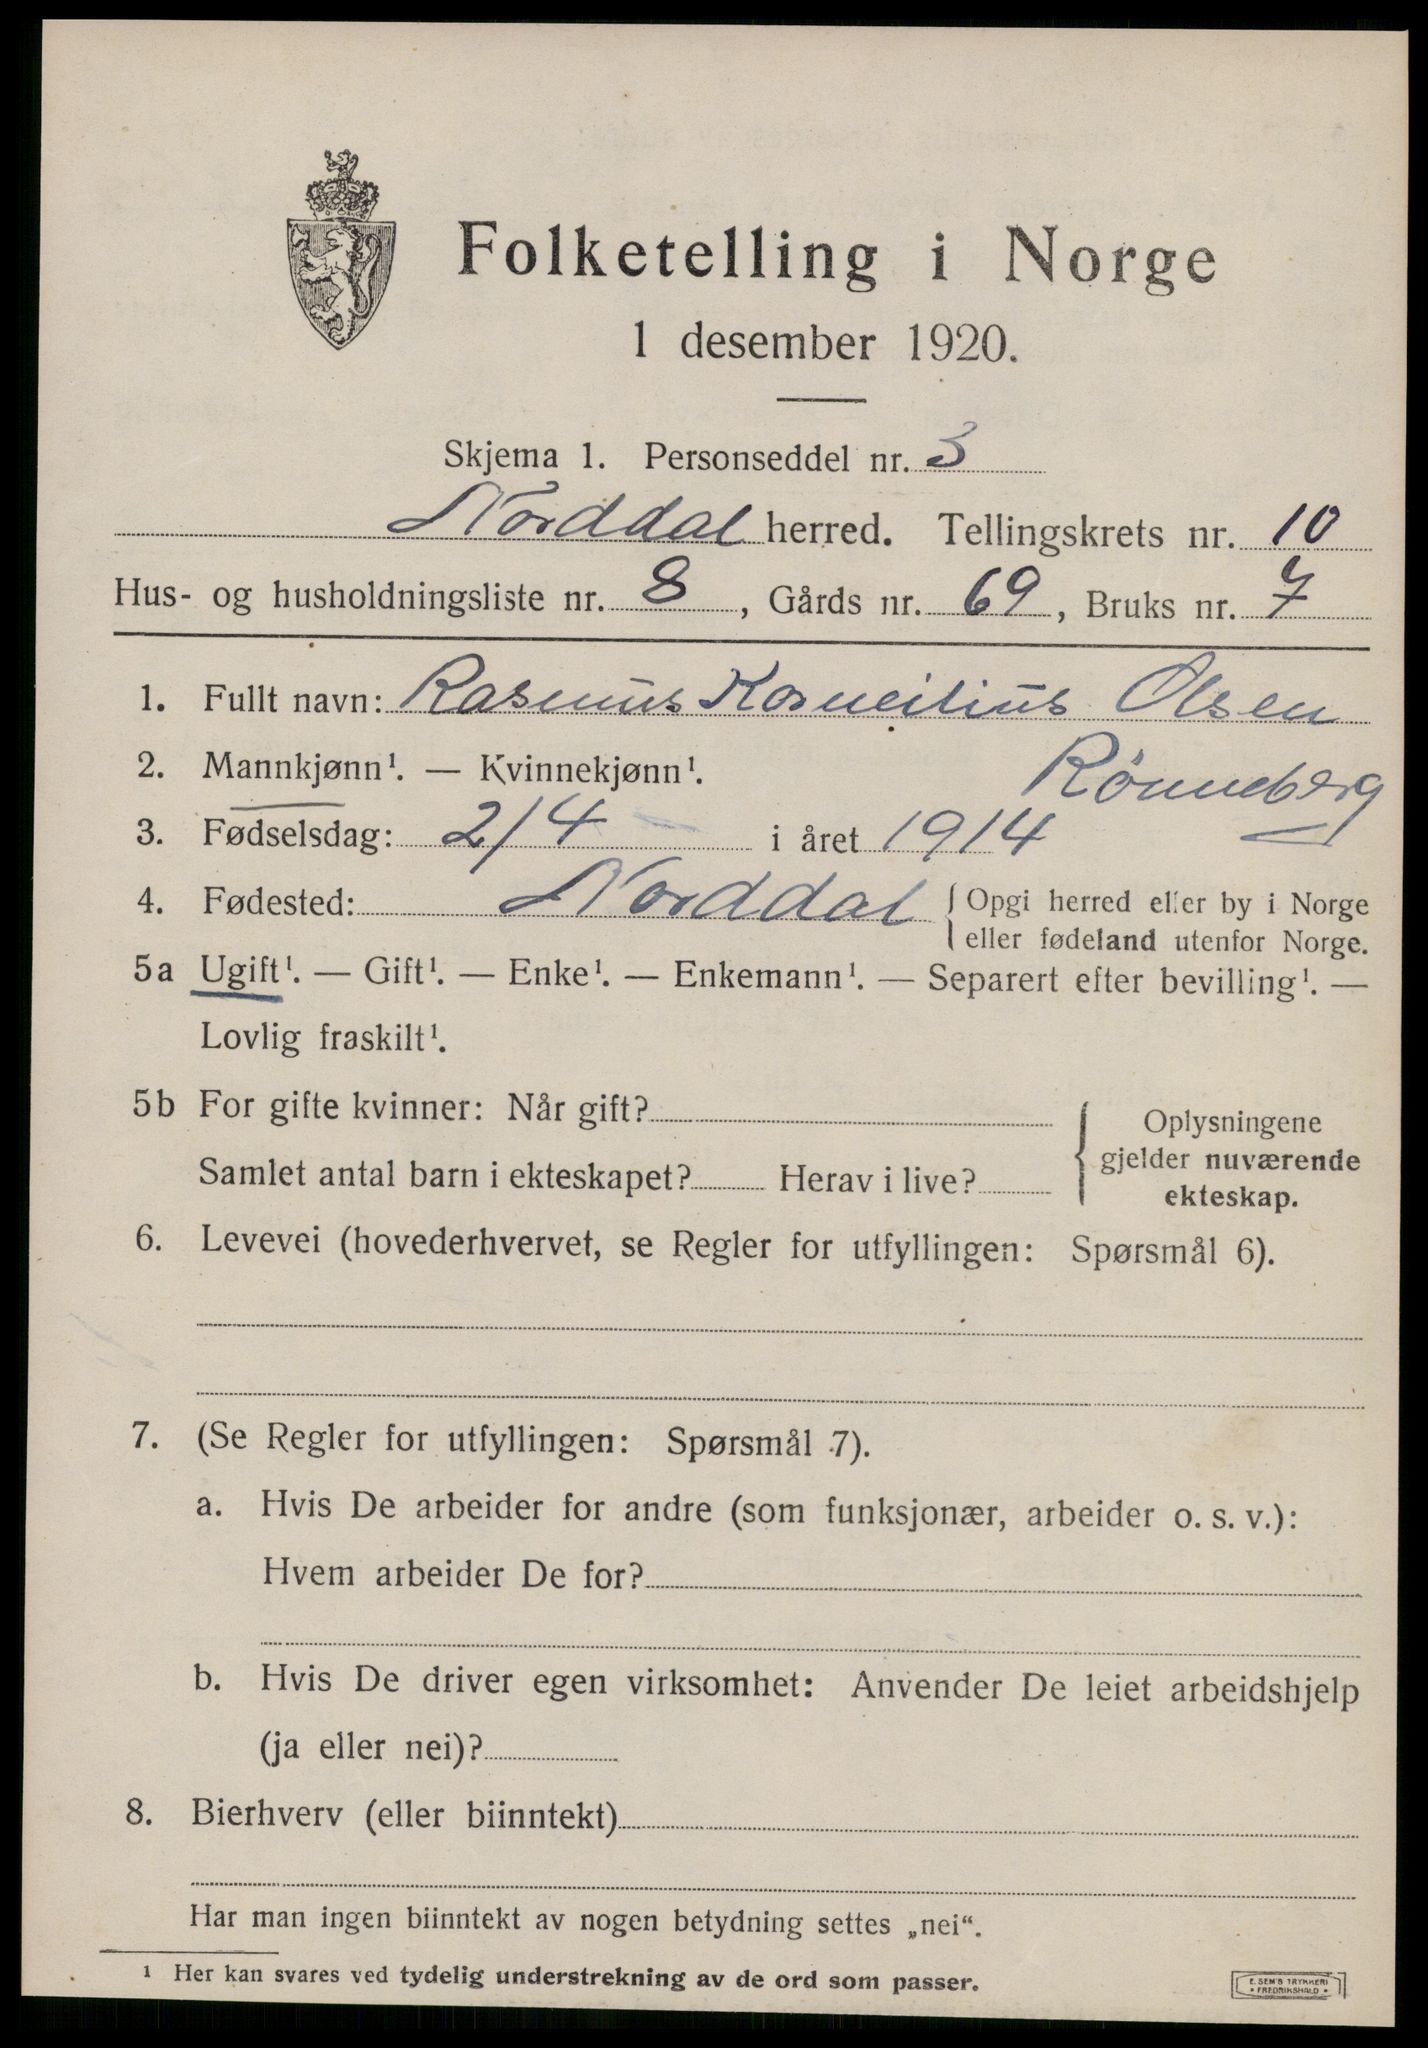 Folketelling i Norge
1 desember 1920.
Skjema 1. Personseddel nr. 3
Norddal herred. Tellingskrets nr. 10
Hus- og husholdningsliste nr. 8, Gårds nr. 69, Bruks nr. 7
1. Fullt navn: Rasmus Korneilius Olsen
Rönneberg
2. Mannkjønn¹. — Kvinnekjønn¹.
3. Fødselsdag: 2/4 i året 1914
4. Fødested: Norddal { Opgi herred eller by i Norge
eller fødeland utenfor Norge.
5a Ugift¹. — Gift¹. — Enke¹. — Enkemann¹. — Separert efter bevilling¹. —
Lovlig fraskilt¹.
5b For gifte kvinner: Når gift?
Samlet antal barn i ekteskapet? Herav i live?
{ Oplysningene
gjelder nuværende
ekteskap.
6. Levevei (hovederhvervet, se Regler for utfyllingen: Spørsmål 6).
7. (Se Regler for utfyllingen: Spørsmål 7).
a. Hvis De arbeider for andre (som funksjonær, arbeider o. s. v.):
Hvem arbeider De for?
b. Hvis De driver egen virksomhet: Anvender De leiet arbeidshjelp
(ja eller nei)?
8. Bierhverv (eller biinntekt)
Har man ingen biinntekt av nogen betydning settes „nei“.
¹ Her kan svares ved tydelig understrekning av de ord som passer.
E. SEM'S TRYKKERI
• FREDRIKSHALD •